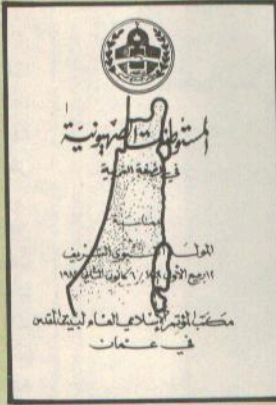 المستوطنات الصهيونية
في الضفة الغربية
بمناسبة
المولد النبوي الشريف
١٢ ربيع الأول / ٦ كانون الثاني
مكتب المؤتمر الإسلامي العام لبيت المقدس
في عمان